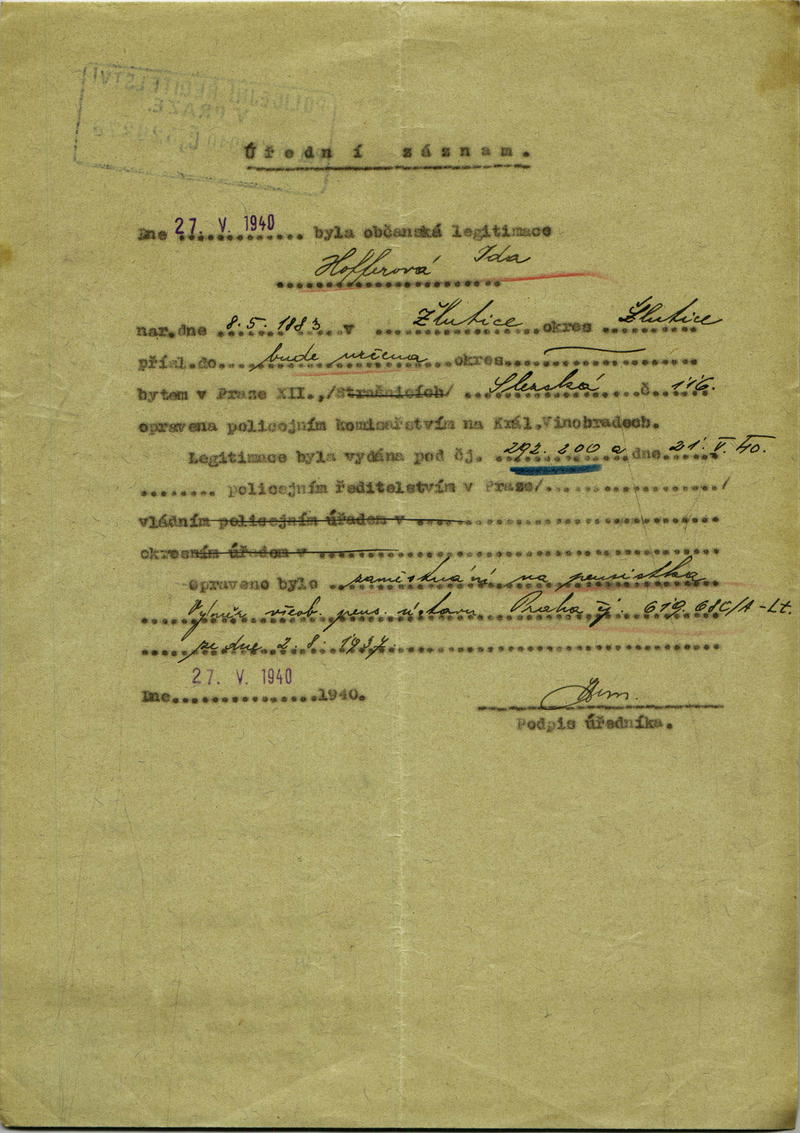 POLICEJNÍ ŘEDITELSTVÍ
V PRAZE.
Úřední záznam.
Dne 27. V. 1940 byla občanská legitimace
Hofferová Ida
nar.dne 8.5.1883 v Žlutice okres Žlutice
přísl.do bude určena okres
bytem v Praze XII.,/Strašnicích/ Slezská č. 116.
opravena policejním komisařstvím na Král.Vinohradech.
Legitimace byla vydána pod čj. 292.200 dne 21. V. 40.
policejním ředitelstvím v Praze/ /
vládním policejním úřadem v
okresním úřadem v
Opraveno bylo zaměstnání na pensistka
Výměr všeob. pens. ústavu Praha čj. 619.680/A-Lt.
ze dne 2.8.1937.
27. V. 1940
Dne 1940.
Podpis úředníka.